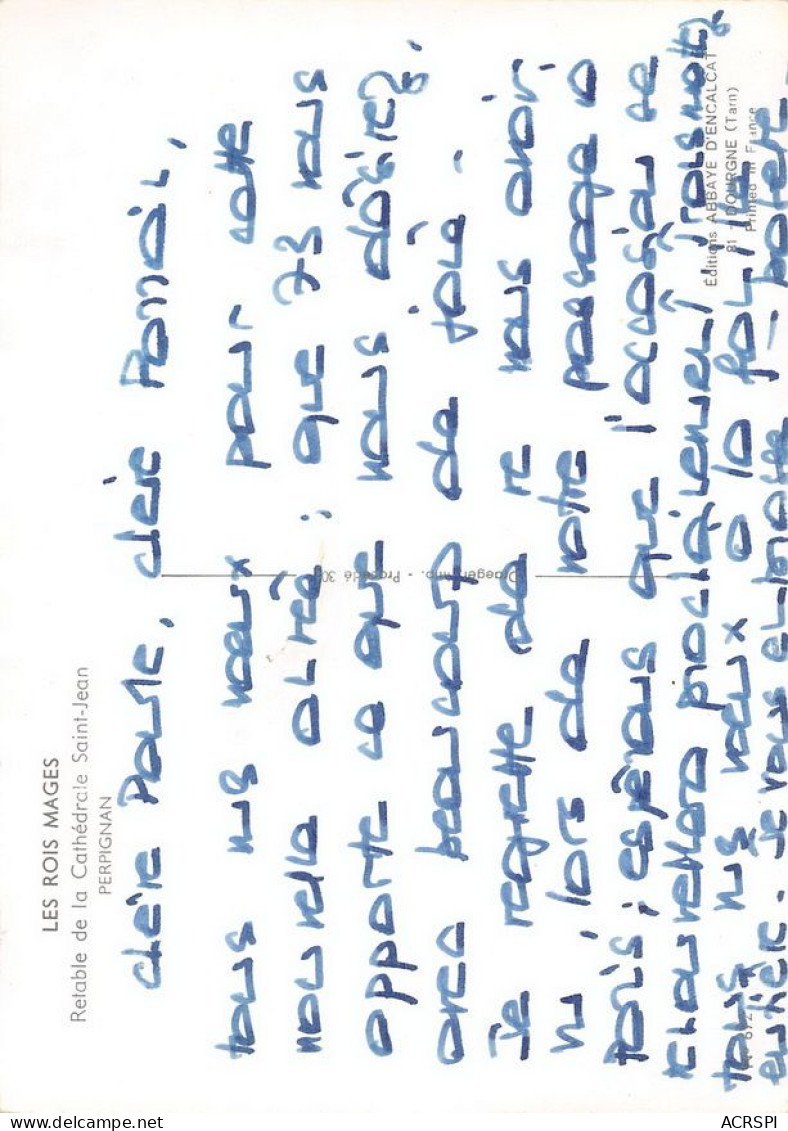 LES ROIS MAGES
Retable de la Cathédrale Saint-Jean
PERPIGNAN
chère Paule, cher
tous mes vœux pour cette
nouvelle année ; que 73 vous
apporte ce que vous désirez,
avec beaucoup de joie.
Je regrette de ne vous avoir
vu, lors de votre passage à
Paris ; espérons que l'occasion se
renouvellera prochainement, transmettez
tous mes vœux à la famille
entière. Je vous embrasse
Draeger, imp. - Procédé 301
Éditions ABBAYE D'ENCALCAT
81 - DOURGNE (Tarn)
Printed in France
ACRSPI